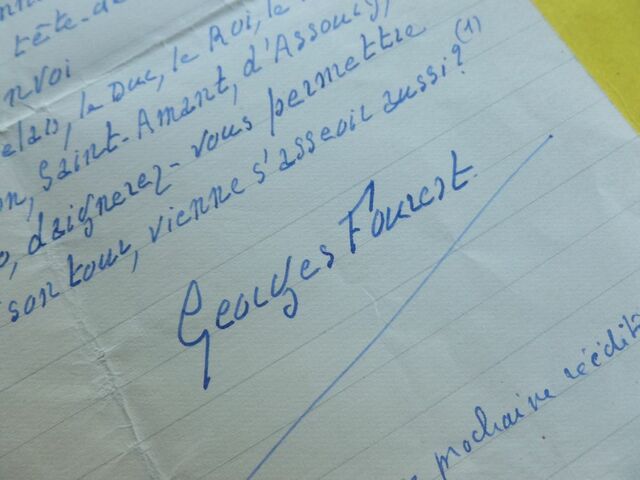 tête-de
nvoi
elais, le Duc, le Roi, le
on, Saint-Amant, d'Assoucy,
o, daignerez-vous permettre
son tour, vienne s'asseoir aussi? (1)
Georges Fourest
prochaine réédit